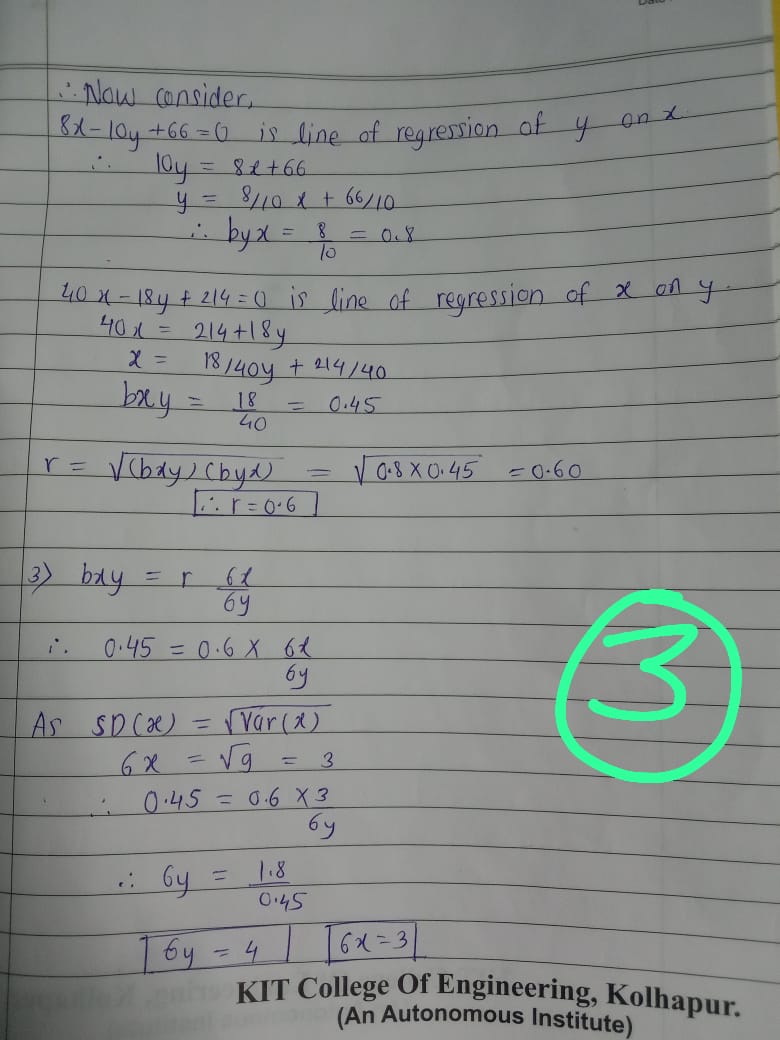 ∴ Now consider,
8x-10y+66=0 is line of regression of y on x
∴ 10y = 8x+66
y = 8/10 x + 66/10
∴ byx = 8/10 = 0.8
40x-18y+214=0 is line of regression of x on y.
40x = 214+18y
x = 18/40y + 214/40
bxy = 18/40 = 0.45
r = √(bxy)(byx) = √0.8×0.45 = 0.60
∴ r=0.6
3) bxy = r 6x/6y
∴ 0.45 = 0.6 × 6x/6y
As SD(x) = √Var(x)
6x = √9 = 3
∴ 0.45 = 0.6 × 3/6y
∴ 6y = 1.8/0.45
6y = 4 6x=3
3
KIT College Of Engineering, Kolhapur.
(An Autonomous Institute)